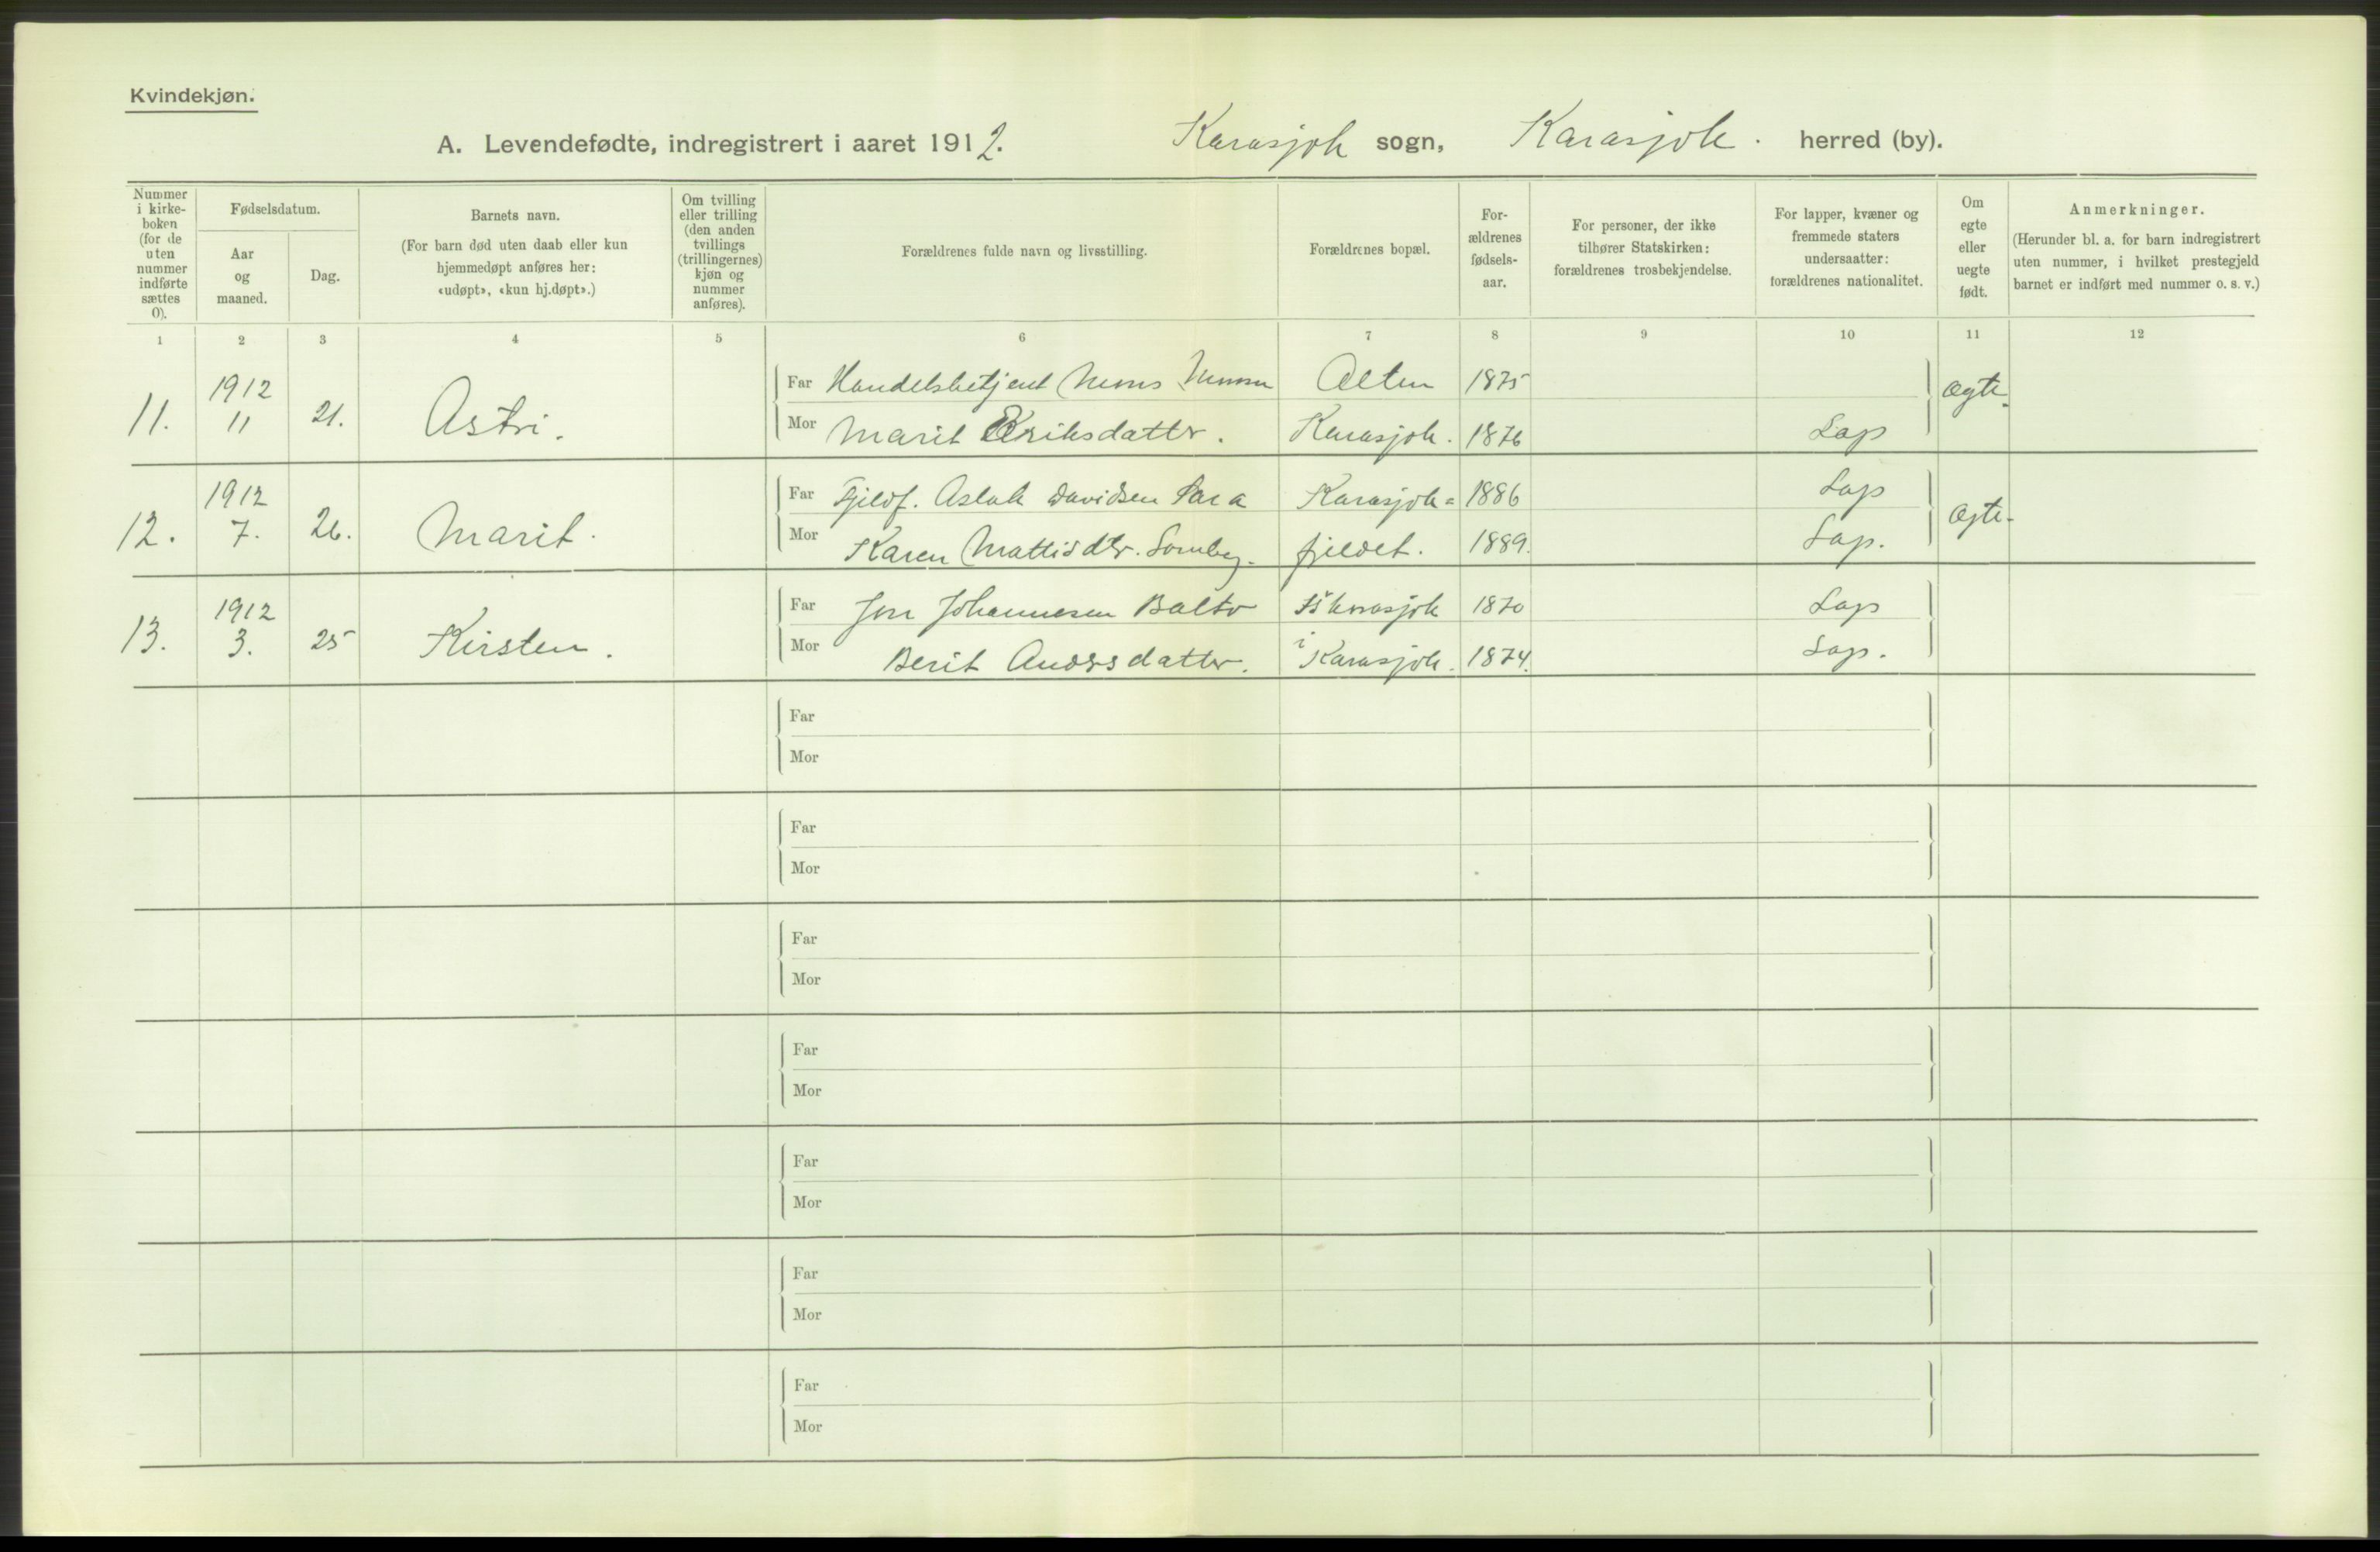 Kvindekjøn.
A. Levendefødte, indregistrert i aaret 1912. Karasjok sogn, Karasjok. herred (by).
Nummer i kirke- boken (for de uten nummer indførte sættes 0).
Fødselsdatum.
Aar og maaned.
Dag.
Barnets navn.
(For barn død uten daab eller kun hjemmedøpt anføres her: «udøpt», «kun hj.døpt».)
Om tvilling eller trilling (den anden tvillings (trillingernes) kjøn og nummer anføres).
Forældrenes fulde navn og livsstilling.
Forældrenes bopæl.
For- ældrenes fødsels- aar.
For personer, der ikke tilhører Statskirken: forældrenes trosbekjendelse.
For lapper, kvæner og fremmede staters undersaatter: forældrenes nationalitet.
Om egte eller uegte født.
Anmerkninger.
(Herunder bl. a. for barn indregistrert uten nummer, i hvilket prestegjeld barnet er indført med nummer o. s. v.)
1 2 3 4 5 6 7 8 9 10 11 12
11. 1912 11 21. Astri. Far Handelsbetjent Alten 1875 Ægte.
Mor Marit Eriksdatter. Karasjok. 1876 Lap
12. 1912 7. 26. Marit. Far Fjeldf. Aslak Davidsen Sara Karasjok= 1886 Lap Ægte.
Mor Karen Mattisdtr. Somby. fjeldet. 1889. Lap.
13. 1912 3. 25 Kirsten. Far Jon Johannesen Balto Iskorasjok 1870 Lap
Mor Berit Andersdatter. i Karasjok. 1874. Lap.
Far
Mor
Far
Mor
Far
Mor
Far
Mor
Far
Mor
Far
Mor
Far
Mor